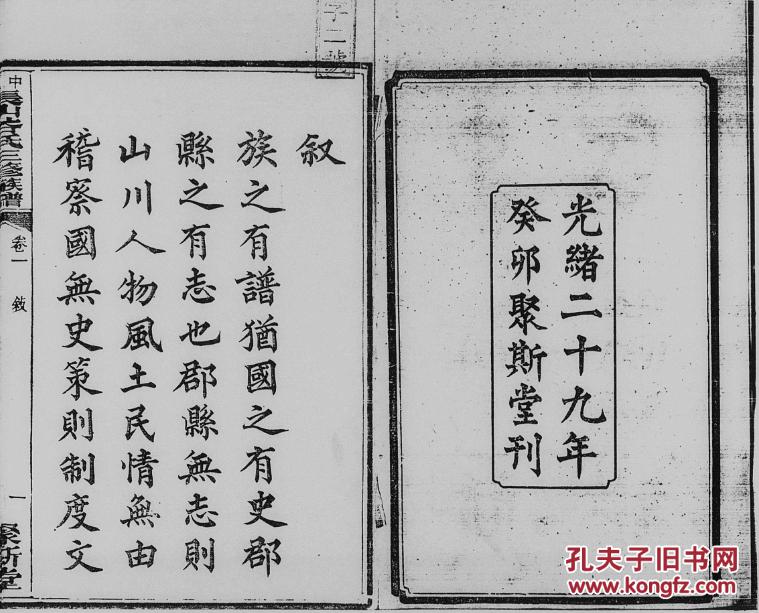 字二號
光緒二十九年
癸卯聚斯堂刊
叙
族之有譜猶國之有史郡
縣之有志也郡縣無志則
山川人物風土民情無由
稽察國無史策則制度文
卷一
敘
一
聚斯堂
孔夫子旧书网
www.kongfz.com